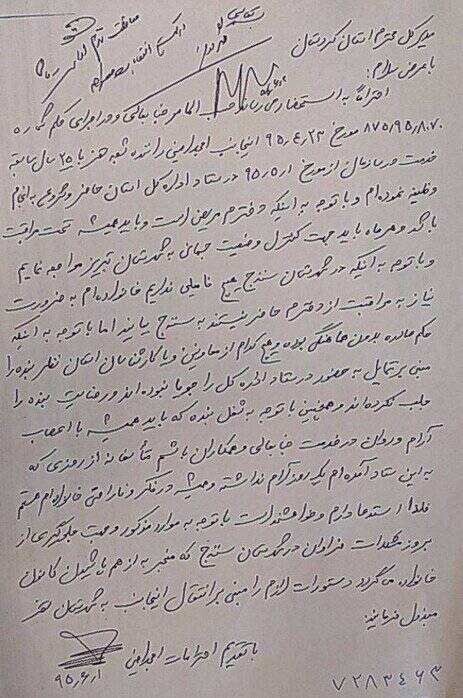 مدیر کل محترم استان کردستان
با عرض سلام:
احتراماً به استحضار می رساند حسب الامر جنابعالی و در اجرای حکم شماره
۸۷۵/۹۵/۸۰۷۰ مورخ ۹۵،۴،۲۳ اینجانب امینی راننده شعبه سقز با ۲۵ سال سابقه
خدمت در سازمان از مورخ ۹۵،۵،۱ در ستاد اداره کل استان حاضر و شروع به انجام
وظیفه نموده ام و با توجه به اینکه دخترم مریض است و باید همیشه تحت مراقبت
باشد و هر ماه باید جهت کنترل وضعیت جسمانی به شهرستان تبریز مراجعه نمایم
و با توجه به اینکه در شهرستان سنندج هیچ فامیلی نداریم خانواده ام به ضرورت
نیاز به مراقبت از دخترم حاضر نیستند به سنندج بیایند اما با توجه به اینکه
حکم صادره بدون هماهنگی بوده و هیچ کدام از معاونین و یا کارشناسان استان نظر بنده را
مبنی بر تمایل به حضور در ستاد اداره کل را جویا نبوده اند و رضایت بنده را
جلب نکرده اند و همچنین با توجه به شغل بنده که باید همیشه با اعصاب
آرام و روان در خدمت جنابعالی و همکاران باشم متأسفانه از روزی که
به این ستاد آمده ام یک روز آرام نداشته و همیشه در فکر و ناراحتی خانواده ام هستم
لذا استدعا دارم و خواهشمند است با توجه به موارد مذکور و جهت جلوگیری از
بروز مشکلات فراوان در شهرستان سنندج که منجر به از هم پاشیدن کانون
خانواده می گردد دستورات لازم را مبنی بر انتقال اینجانب به شهرستان سقز
مبذول فرمایید
با تقدیم احترامات امینی
۹۵،۶،۱
۷۲۸۳۴۶۳